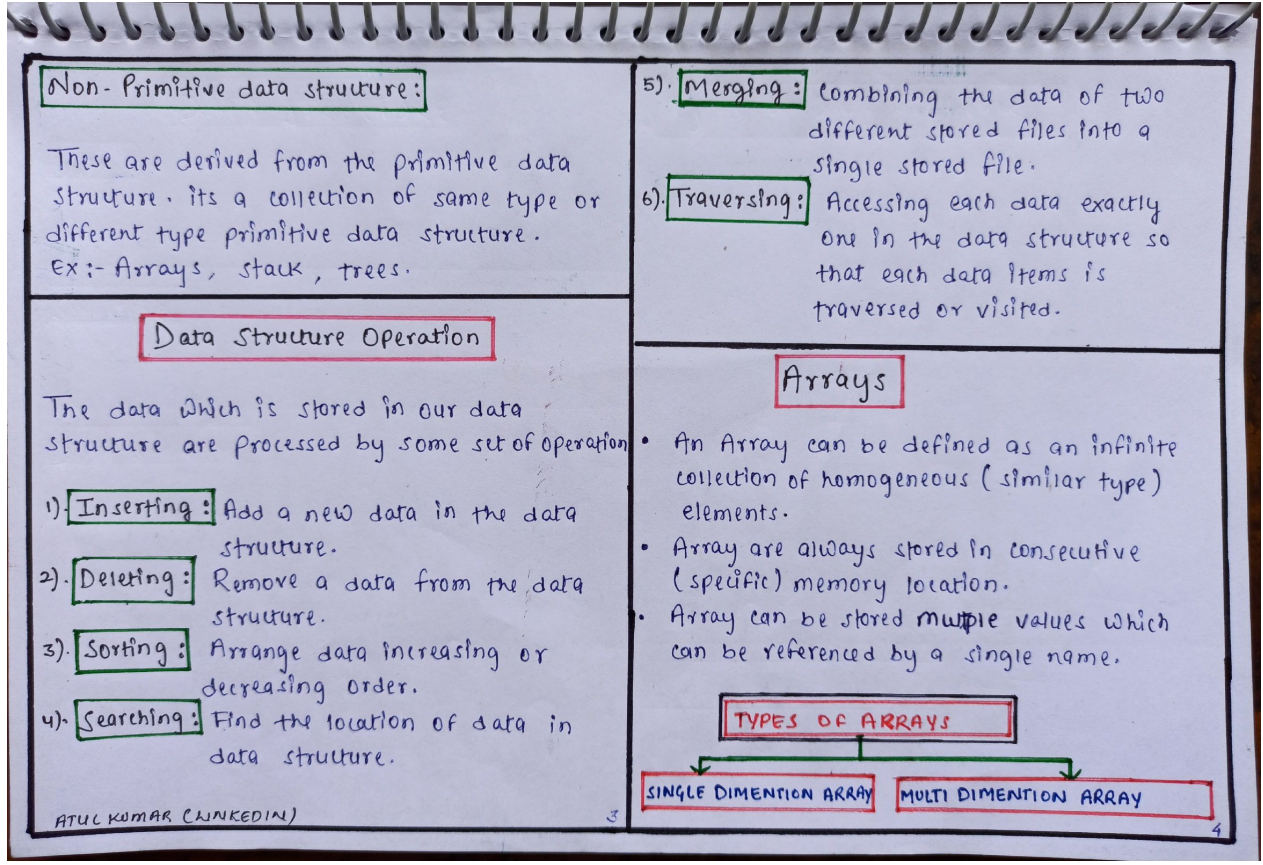 Non-Primitive data structure:
These are derived from the primitive data
structure. its a collection of same type or
different type primitive data structure.
Ex:- Arrays, stack, trees.
Data Structure Operation
The data which is stored in our data
structure are processed by some set of operation
1). Inserting: Add a new data in the data
structure.
2). Deleting: Remove a data from the data
structure.
3). Sorting: Arrange data increasing or
decreasing order.
4). Searching: Find the location of data in
data structure.
ATUL KUMAR (LINKEDIN)
3
5). Merging: Combining the data of two
different stored files into a
single stored file.
6). Traversing: Accessing each data exactly
one in the data structure so
that each data items is
traversed or visited.
Arrays
• An Array can be defined as an infinite
collection of homogeneous (similar type)
elements.
• Array are always stored in consecutive
(specific) memory location.
• Array can be stored multiple values which
can be referenced by a single name.
TYPES OF ARRAYS
SINGLE DIMENTION ARRAY
MULTI DIMENTION ARRAY
4